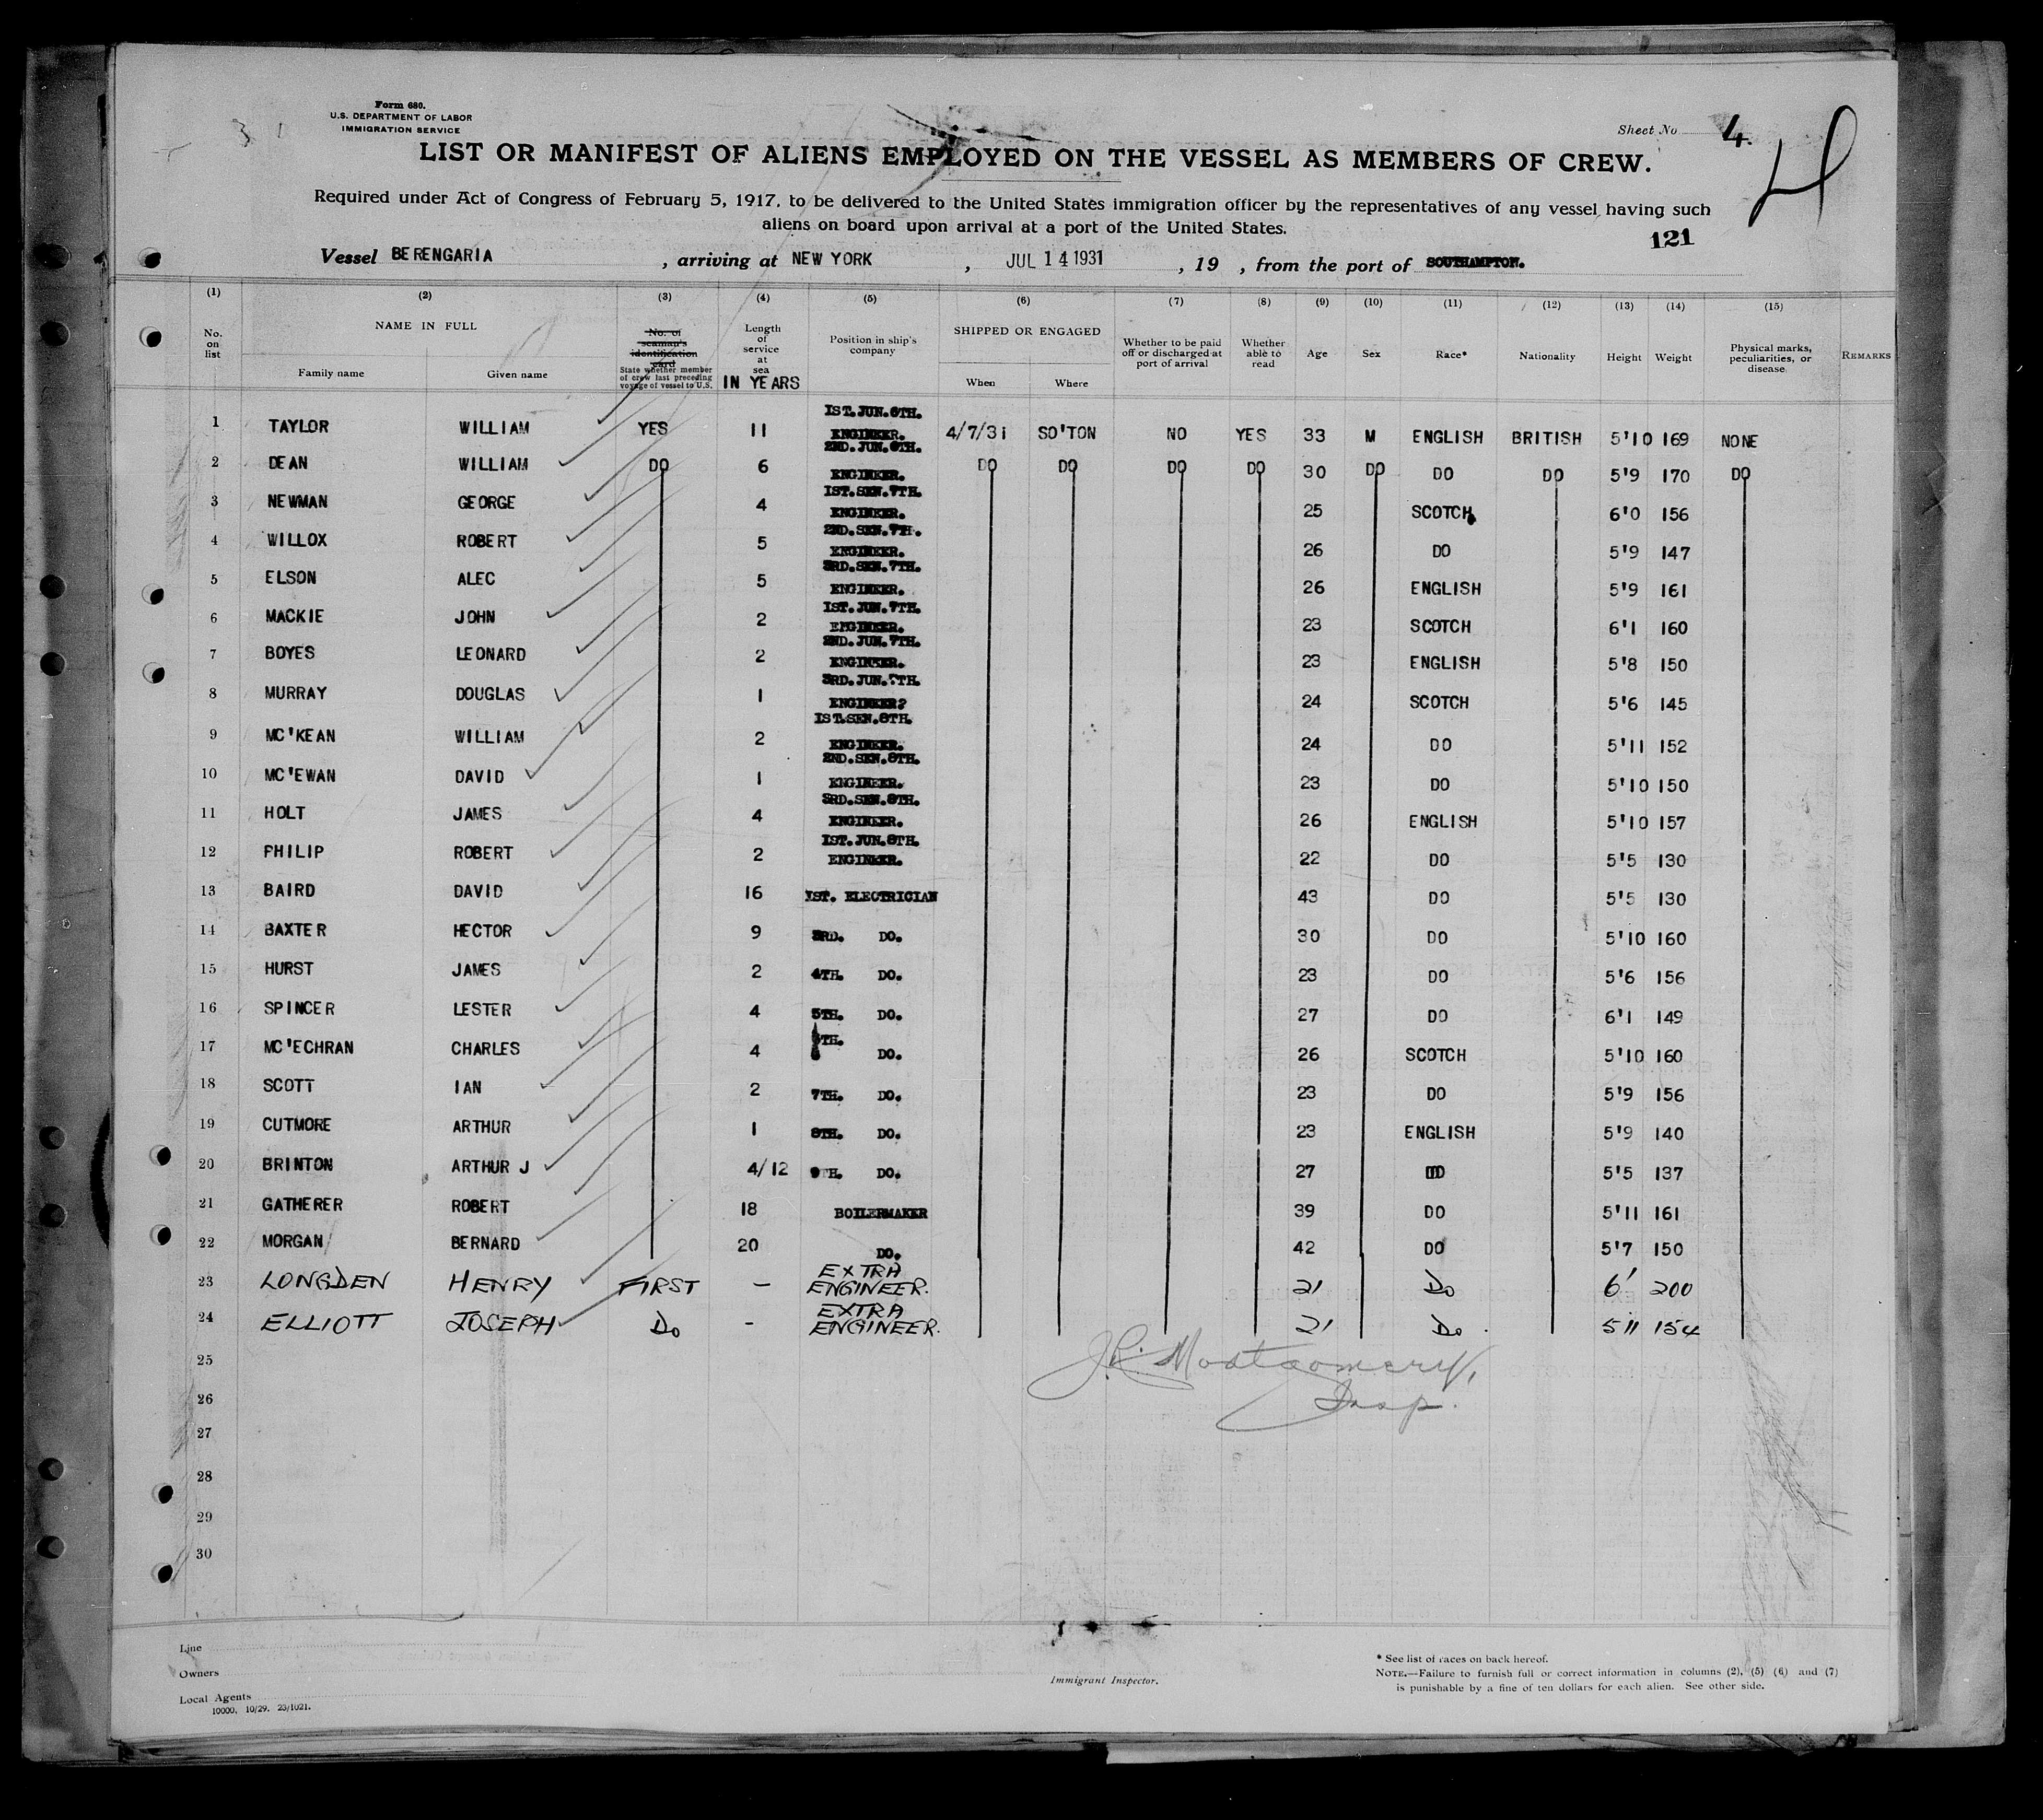 Form 680.
U.S. DEPARTMENT OF LABOR
IMMIGRATION SERVICE
Sheet No 4.
4
LIST OR MANIFEST OF ALIENS EMPLOYED ON THE VESSEL AS MEMBERS OF CREW.
Required under Act of Congress of February 5, 1917, to be delivered to the United States immigration officer by the representatives of any vessel having such
aliens on board upon arrival at a port of the United States.
121
Vessel BERENGARIA , arriving at NEW YORK , JUL 14 1931 , 19 , from the port of SOUTHAMPTON.
(1) (2) (3) (4) (5) (6) (7) (8) (9) (10) (11) (12) (13) (14) (15)
No. on list NAME IN FULL Family name Given name No. of seaman's identification card State whether member of crew last preceding voyage of vessel to U.S. Length of service at sea IN YEARS Position in ship's company SHIPPED OR ENGAGED When Where Whether to be paid off or discharged at port of arrival Whether able to read Age Sex Race* Nationality Height Weight Physical marks, peculiarities, or disease REMARKS
1 TAYLOR WILLIAM YES 11 1ST. JUN. 6TH. ENGINEER. 4/7/31 SO'TON NO YES 33 M ENGLISH BRITISH 5'10 169 NONE
2 DEAN WILLIAM DO 6 2ND. JUN. 6TH. ENGINEER. DO DO DO DO 30 DO DO DO 5'9 170 DO
3 NEWMAN GEORGE 4 1ST. SEN. 7TH. ENGINEER. 25 SCOTCH 6'0 156
4 WILLOX ROBERT 5 2ND. SEN. 7TH. ENGINEER. 26 DO 5'9 147
5 ELSON ALEC 5 3RD. SEN. 7TH. ENGINEER. 26 ENGLISH 5'9 161
6 MACKIE JOHN 2 1ST. JUN. 7TH. ENGINEER. 23 SCOTCH 6'1 160
7 BOYES LEONARD 2 2ND. JUN. 7TH. ENGINEER. 23 ENGLISH 5'8 150
8 MURRAY DOUGLAS 1 3RD. JUN. 7TH. ENGINEER? 24 SCOTCH 5'6 145
9 MC'KEAN WILLIAM 2 1ST. SEN. 8TH. ENGINEER. 24 DO 5'11 152
10 MC'EWAN DAVID 1 2ND. SEN. 8TH. ENGINEER. 23 DO 5'10 150
11 HOLT JAMES 4 3RD. SEN. 8TH. ENGINEER. 26 ENGLISH 5'10 157
12 PHILIP ROBERT 2 1ST. JUN. 8TH. ENGINEER. 22 DO 5'5 130
13 BAIRD DAVID 16 1ST. ELECTRICIAN 43 DO 5'5 130
14 BAXTER HECTOR 9 3RD. DO. 30 DO 5'10 160
15 HURST JAMES 2 4TH. DO. 23 DO 5'6 156
16 SPINCER LESTER 4 5TH. DO. 27 DO 6'1 149
17 MC'ECHRAN CHARLES 4 6TH. DO. 26 SCOTCH 5'10 160
18 SCOTT IAN 2 7TH. DO. 23 DO 5'9 156
19 CUTMORE ARTHUR 1 8TH. DO. 23 ENGLISH 5'9 140
20 BRINTON ARTHUR J 4/12 9TH. DO. 27 DO 5'5 137
21 GATHERER ROBERT 18 BOILERMAKER 39 DO 5'11 161
22 MORGAN BERNARD 20 DO. 42 DO 5'7 150
23 LONGDEN HENRY FIRST – EXTRA ENGINEER. 21 Do 6' 200
24 ELLIOTT JOSEPH Do - EXTRA ENGINEER. 21 Do. 5 11 154
25
J.R. Montgomery,
26
Insp.
27
28
29
30
Line
Owners
Local Agents
10000, 10/29. 23/1021.
Immigrant Inspector.
* See list of races on back hereof.
NOTE.—Failure to furnish full or correct information in columns (2), (5) (6) and (7)
is punishable by a fine of ten dollars for each alien. See other side.